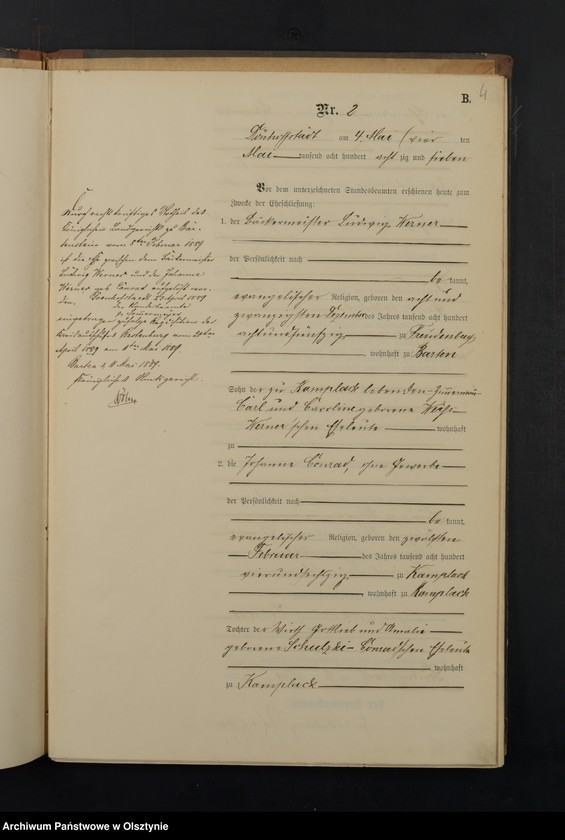 B.
4
Nr. 2
Dönhoffstädt am 4. Mai (vier ten
Mai tausend acht hundert acht zig und sieben
Vor dem unterzeichneten Standesbeamten erschienen heute zum
Zwecke der Eheschließung:
1. der Bäckermeister Ludwig Werner
der Persönlichkeit nach
be kannt,
evangelischer Religion, geboren den acht und
zwanzigsten Dezember des Jahres tausend acht hundert
achtundfünfzig zu
, wohnhaft zu Barten
Sohn der zu Kamplack lebenden
Carl und Caroline geborene
Werner'schen Eheleute wohnhaft
zu
2. die Johanne Conrad, ohne Gewerbe
der Persönlichkeit nach
be kannt,
evangelischer Religion, geboren den zwölften
Februar des Jahres tausend acht hundert
vierundsechzig zu Kamplack
, wohnhaft zu Kamplack
Tochter der Wirth Gottlieb und Amalie
geborene Schulzki- Conrad'schen Eheleute
wohnhaft
zu Kamplack
Königlichen Landgerichts zu Bar-
tenstein vom 8ten Februar 1889
ist die Ehe zwischen dem Bäckermeister
Ludwig Werner und der Johanne
Werner geb. Conrad aufgelöst wor-
den.
Der Standesbeamte
April 1889 am 8ten Mai 1889.
Barten d. 8 Mai 1889.
Königliches Amtsgericht.
Archiwum Państwowe w Olsztynie